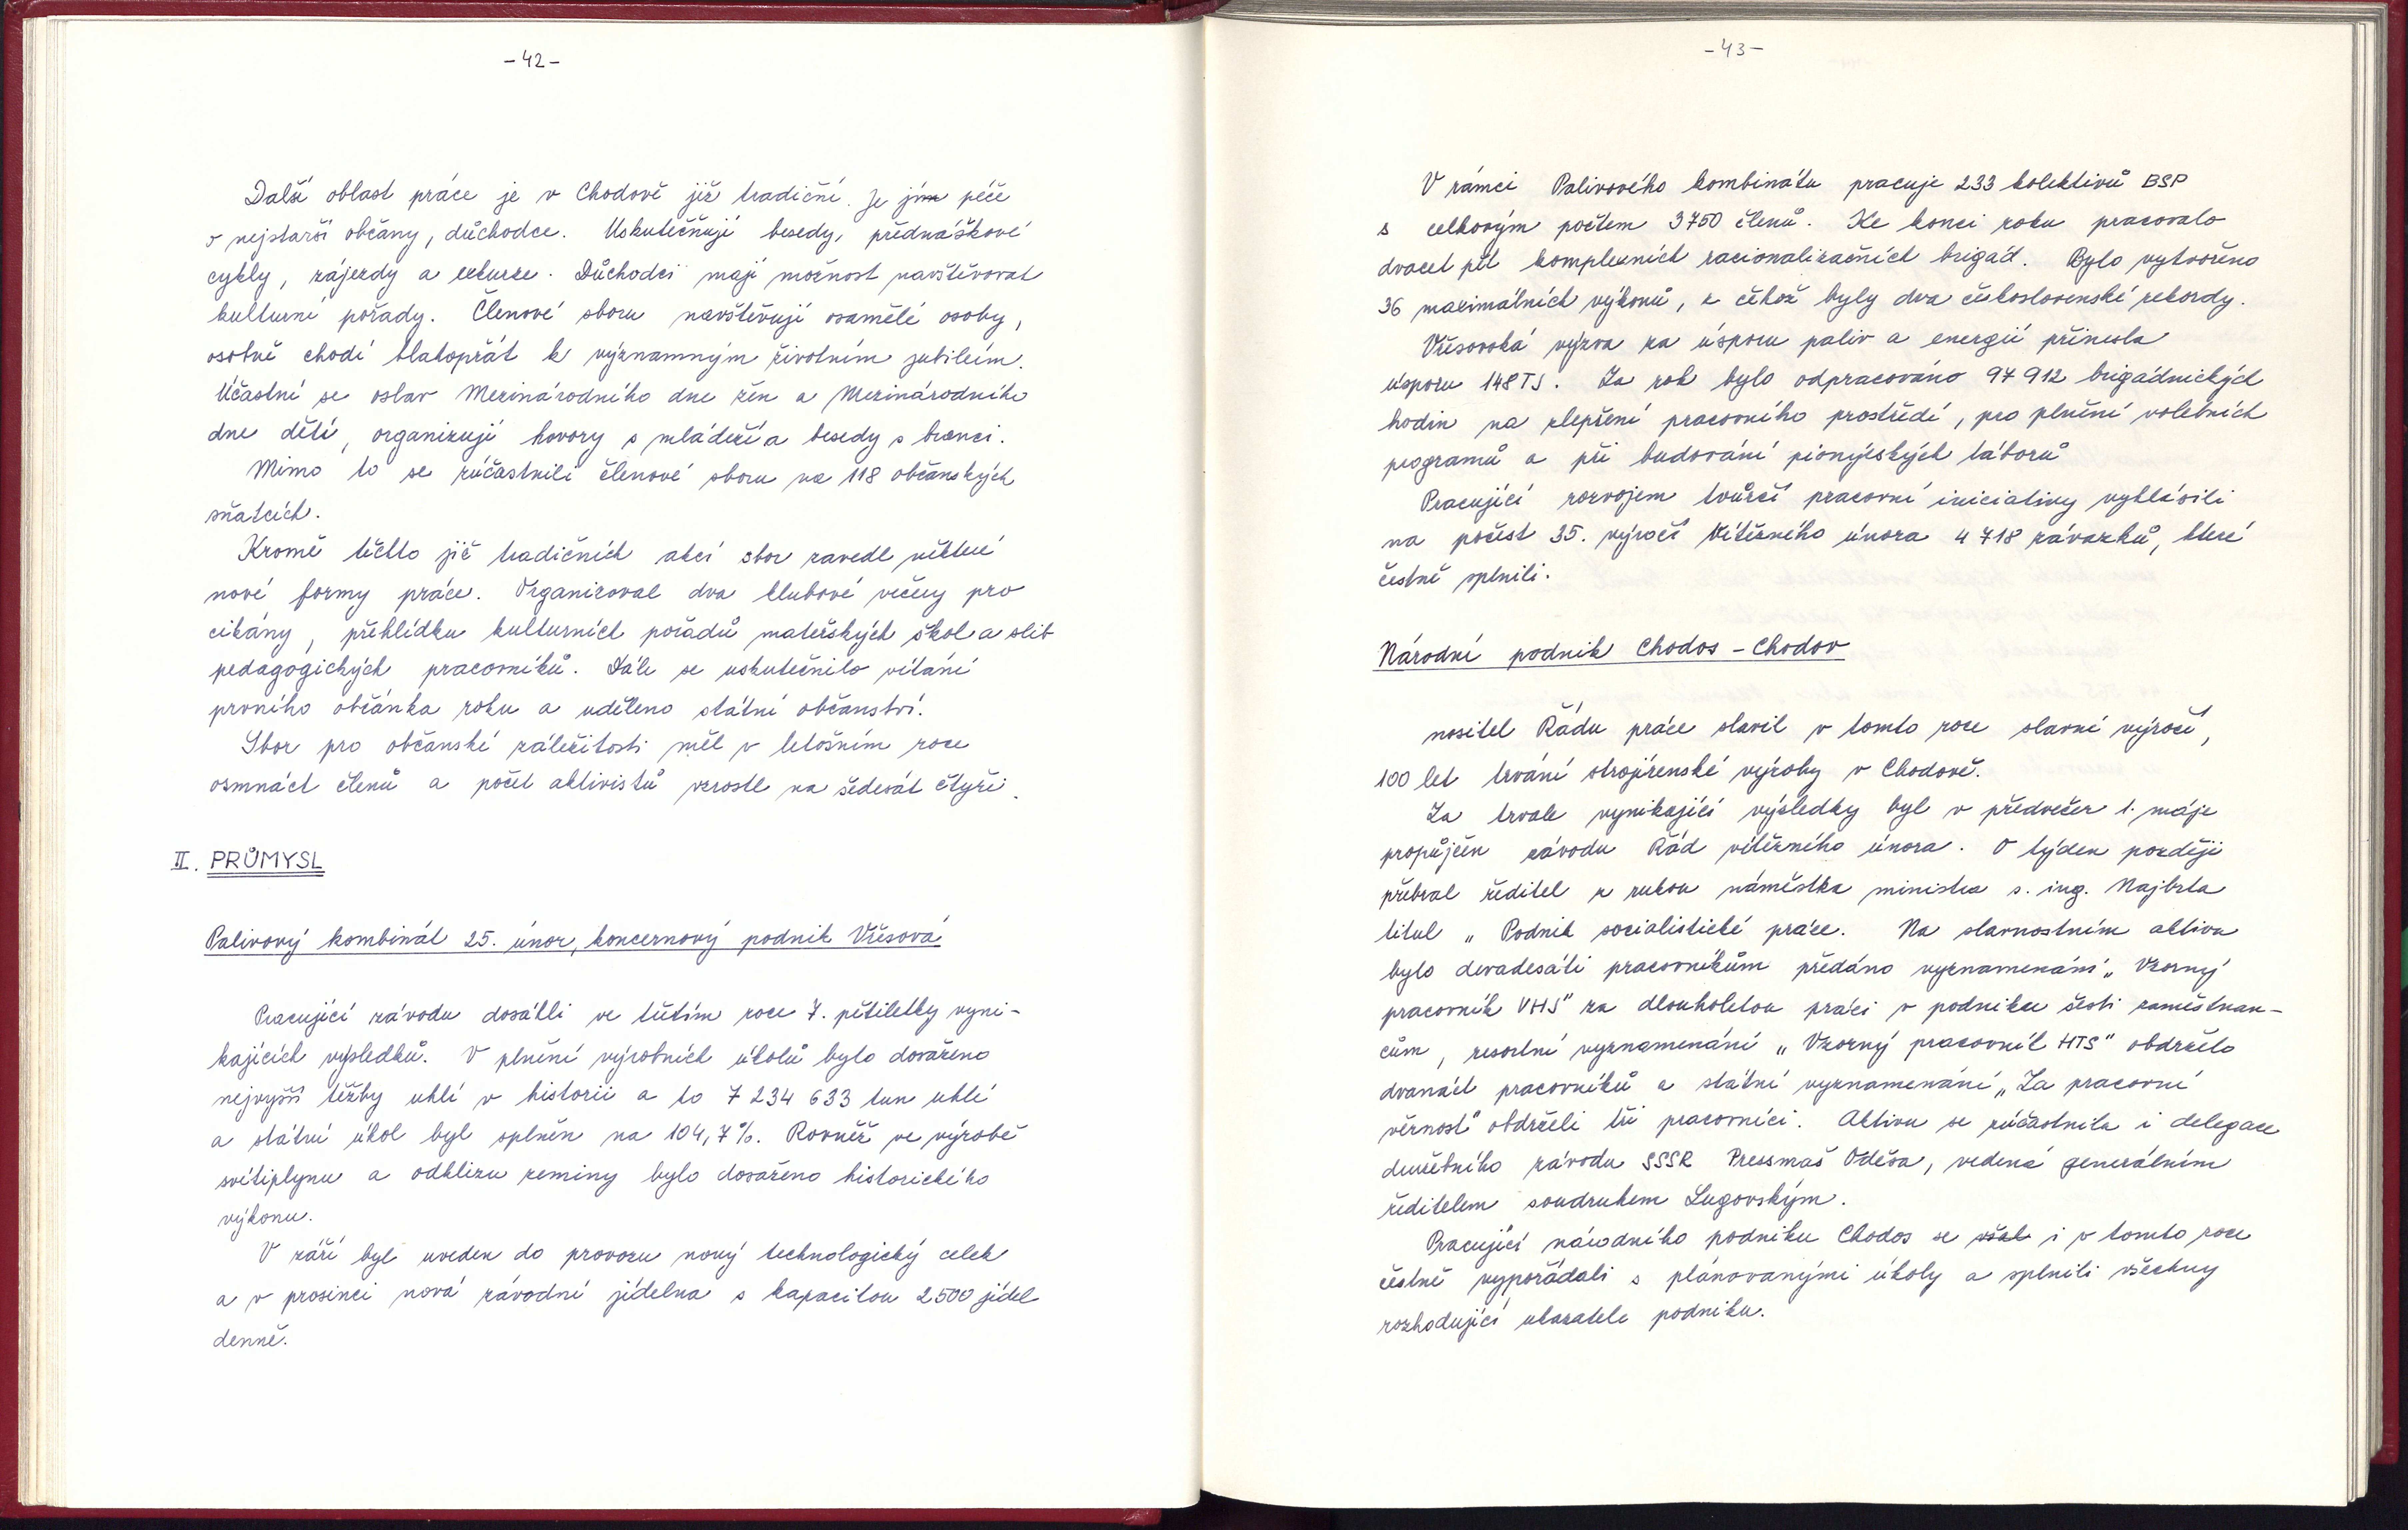 -42-
Další oblast práce je v Chodově již tradiční. Je jím péče
o nejstarší občany, důchodce. Uskutečňují besedy, přednáškové
cykly, zájezdy a exkurze. Důchodci mají možnost navštěvovat
kulturní pořady. Členové sboru navštěvují osamělé osoby,
osobně chodí blahopřát k významným životním jubileím.
Účastní se oslav Mezinárodního dne žen a Mezinárodního
dne dětí, organizují hovory s mládeží a besedy s branci.
Mimo to se zúčastnili členové sboru na 118 občanských
sňatcích.
Kromě těchto již tradičních akcí sbor zavedl některé
nové formy práce. Organizoval dva klubové večery pro
cikány, přehlídku kulturních pořadů mateřských škol a slib
pedagogických pracovníků. Dále se uskutečnilo vítání
prvního občánka roku a uděleno státní občanství.
Sbor pro občanské záležitosti měl v letošním roce
osmnáct členů a počet aktivistů vzrostl na šedesát čtyři.
II. PRŮMYSL
Palivový kombinát 25. únor, koncernový podnik Vřesová
Pracující závodu dosáhli ve třetím roce 7. pětiletky vyni-
kajících výsledků. V plnění výrobních úkolů bylo dosaženo
nejvyšší těžby uhlí v historii a to 7 234 633 tun uhlí
a státní úkol byl splněn na 104,7%. Rovněž ve výrobě
svítiplynu a odklizu zeminy bylo dosaženo historického
výkonu.
V září byl uveden do provozu nový technologický celek
a v prosinci nová závodní jídelna s kapacitou 2500 jídel
denně.
-43-
V rámci Palivového kombinátu pracuje 233 kolektivů BSP
s celkovým počtem 3750 členů. Ke konci roku pracovalo
dvacet pět komplexních racionalizačních brigád. Bylo vytvořeno
36 maximálních výkonů, z čehož byly dva československé rekordy.
Vřesovská výzva za úsporu paliv a energií přinesla
úsporu 148 TJ. Za rok bylo odpracováno 97 912 brigádnických
hodin na zlepšení pracovního prostředí, pro plnění volebních
programů a při budování pionýrských táborů
Pracující rozvojem tvůrčí pracovní iniciativy vyhlásili
na počest 35. výročí Vítězného února 4 718 závazků, které
čestně splnili.
Národní podnik Chodos - Chodov
nositel Řádu práce slavil v tomto roce slavné výročí,
100 let trvání strojírenské výroby v Chodově.
Za trvale vynikající výsledky byl v předvečer 1. máje
propůjčen závodu Řád vítězného února. O týden později
přebral ředitel z rukou náměstka ministra s. ing. Najbrta
titul „ Podnik socialistické práce. Na slavnostním aktivu
bylo devadesáti pracovníkům předáno vyznamenání „ Vzorný
pracovník VHS" za dlouholetou práci v podniku šesti zaměstnan-
cům, resortní vyznamenání „ Vzorný pracovník HTS" obdrželo
dvanáct pracovníků a státní vyznamenání „Za pracovní
věrnost" obdrželi tři pracovníci. Aktivu se zúčastnila i delegace
družebního závodu SSSR Pressmaš Oděsa, vedená generálním
ředitelem soudruhem Lugovským.
Pracující národního podniku Chodos se však i v tomto roce
čestně vypořádali s plánovanými úkoly a splnili všechny
rozhodující ukazatele podniku.